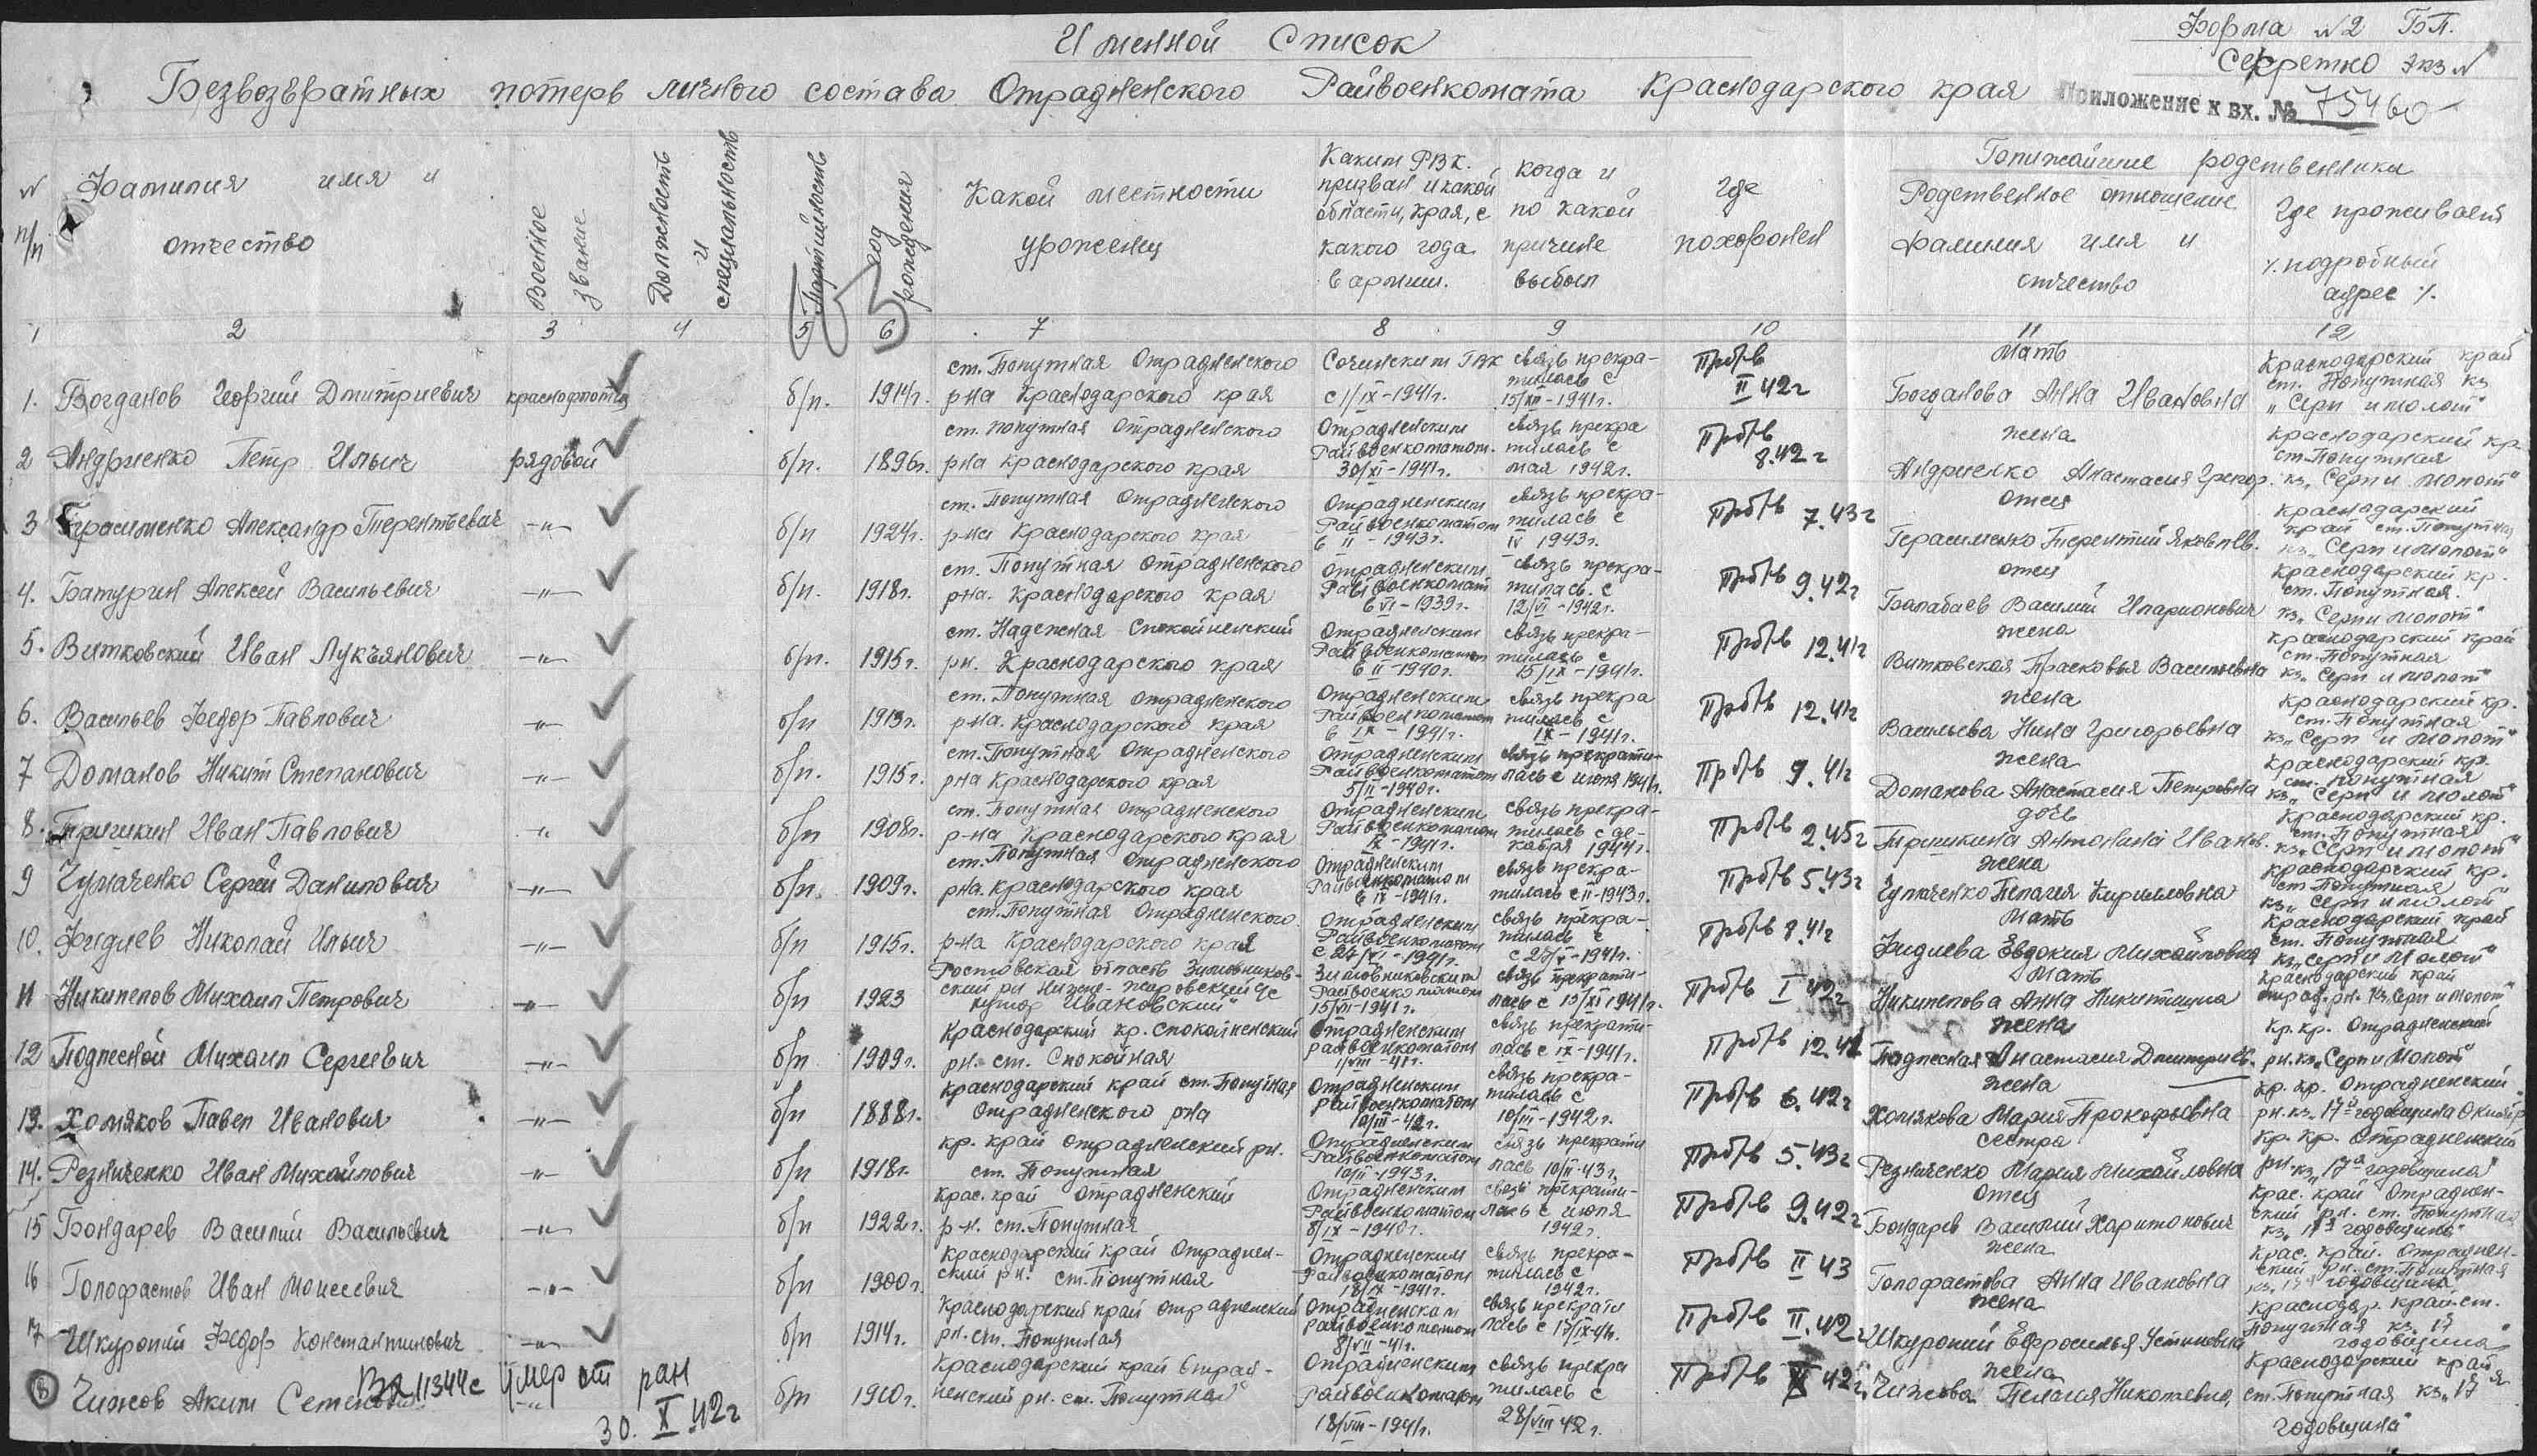 Форма №2 БП.
Секретно экз №
Приложение к вх. № 75460
Именной Список
Безвозвратных потерь личного состава Отрадненского Райвоенкомата Краснодарского края
№ п/п
Фамилия имя и отчество
Военное звание
Должность и специальность
Партийность
год рождения
Какой местности уроженец
Каким РВК. призван и какой области, края, с какого года в армии.
Когда и по какой причине выбыл
где похоронен
Ближайшие родственники
Родственное отношение фамилия имя и отчество
Где проживает /. подробный адрес /.
1 2 3 4 5 6 7 8 9 10 11 12
1. Богданов Георгий Дмитриевич краснофлотец б/п. 1914г. ст. Попутная Отрадненского р-на Краснодарского края Сочинским ГВК с 1/IX-1941г. связь прекратилась с 15/XII-1941г. Пр б/в II 42г мать Богданова Анна Ивановна Краснодарский край ст. Попутная кз „Серп и молот"
2 Андриенко Петр Ильич рядовой б/п. 1896г. ст. Попутная Отрадненского р-на Краснодарского края Отрадненским Райвоенкоматом. 30/XI-1941г. связь прекратилась с мая 1942г. Пр б/в 8.42 г жена Андриенко Анастасия Григор. Краснодарский кр. ст. Попутная кз „Серп и молот"
3 Герасименко Александр Терентьевич -"- б/п 1924г. ст. Попутная Отрадненского р-на Краснодарского края Отрадненским Райвоенкоматом в II-1943г. связь прекратилась с IV 1943г. Пр б/в 7.43 г отец Герасименко Терентий Яковлев. Краснодарский край ст. Попутная кз „Серп и молот"
4. Батурин Алексей Васильевич -"- б/п. 1918г. ст. Попутная Отрадненского р-на. Краснодарского края Отрадненским Райвоенкомат в VI-1939г. связь прекратилась. с 12/VI-1942г. Пр б/в 9.42г отец Балабаев Василий Иларионович Краснодарский кр. ст. Попутная. кз „Серп и молот"
5. Витковский Иван Лукъянович -"- б/п. 1915г. ст. Надежная Спокойненский рн. Краснодарского края Отрадненским Райвоенкоматом в II-1940г. связь прекратилась с 15/IX-1941г. Пр б/в 12.41г жена Витковская Прасковья Васильевна Краснодарский край ст. Попутная кз „Серп и молот"
6. Васильев Федор Павлович -"- б/п 1913г. ст. Попутная Отрадненского р-на. Краснодарского края Отрадненским Райвоенкоматом в IX-1941г. связь прекратилась с IX-1941г. Пр б/в 12.41г жена Васильева Нина Григорьевна Краснодарский кр. ст. Попутная кз „Серп и молот"
7 Доманов Никит Степанович -"- б/п. 1915г. ст. Попутная Отрадненского р-на Краснодарского края Отрадненским Райвоенкоматом 5/II-1940г. связь прекратилась с июля 1941г. Пр б/в 9.41г жена Доманова Анастасия Петровна Краснодарский кр. ст. Попутная кз „Серп и молот"
8. Гришкин Иван Павлович -"- б/п 1908г. ст. Попутная Отрадненского р-на Краснодарского края Отрадненским Райвоенкоматом IX-1941г. связь прекратилась с декабря 1944г. Пр б/в 2.45г дочь Гришкина Антонина Иванов. Краснодарский кр. ст. Попутная кз „Серп и молот"
9 Чумаченко Сергей Данилович -"- б/п. 1909г. ст. Попутная Отрадненского р-на Краснодарского края Отрадненским Райвоенкоматом в IX-1941г. связь прекратилась с II-1943г. Пр б/в 5.43г жена Чумаченко Пелагия Кирилловна Краснодарский кр. ст Попутная кз „Серп и молот"
10. Фидиев Николай Ильич -"- б/п 1915г. ст. Попутная Отрадненского р-на Краснодарского края Отрадненским Райвоенкоматом связь прекратилась с Пр б/в 8.41г мать Фидиева Евдокия Михайловна Краснодарский край ст. Попутная кз „Серп и молот"
11 Никипелов Михаил Петрович -"- б/п 1923 Ростовская область Зимовниковский рн хутор Ивановский" Зимовниковским Райвоенкоматом 15/VII-1941г. связь прекратилась с 15/XI 1941г. Пр б/в I 42г мать Никипелова Анна Никитишна Краснодарский край отрад. рн. кз „Серп и молот"
12 Подлесной Михаил Сергеевич -"- б/п 1909г. Краснодарский кр. Спокойненский рн. ст. Спокойная Отрадненским райвоенкоматом 1/VIII-41г. связь прекратилась с IX-1941г. Пр б/в 12.41 жена Подлесная Анастасия Дмитриев. Кр. кр. Отрадненский рн. кз „Серп и Молот"
13. Хомяков Павел Иванович -"- б/п 1888г. Краснодарский край ст. Попутная Отрадненского р-на Отрадненским райвоенкоматом 10/III-42г. связь прекратилась с 10/III-1942г. Пр б/в 6.42г жена Хомякова Мария Прокофьевна Кр. кр. Отрадненский рн. кз „17й годовщина Октябр"
14. Резниченко Иван Михайлович -"- б/п 1918г. Кр. край Отрадненский рн. ст. Попутная Отрадненским Райвоенкоматом 10/II-1943г. связь прекратилась 10/II-43г. Пр б/в 5.43г сестра Резниченко Мария Михайловна Кр. Кр. Отрадненский рн. кз „17я годовщина"
15 Бондарев Василий Васильевич -"- б/п 1922г. Крас. край Отрадненский р-н. ст. Попутная Отрадненским Райвоенкоматом 8/IX-1940г. связь прекратилась с июля 1942г. Пр б/в 9.42г отец Бондарев Василий Харитонович Крас. край Отрадненский рн. ст. Попутная кз „17я годовщина"
16 Голофастов Иван Моисеевич -"- б/п 1900г. Краснодарский край Отрадненский рн. ст. Попутная Отрадненским Райвоенкоматом 18/IX-1941г. связь прекратилась с 1942г. Пр б/в II 43 жена Голофастова Анна Ивановна Крас. край. Отрадненский рн. ст. Попутная кз „17я годовщина"
17 Шкуропий Федор Константинович -"- б/п 1914г. Краснодарский край Отрадненский рн. ст. Попутная Отрадненским райвоенкоматом 8/VII-41г. связь прекратилась с 17/IX-41г. Пр б/в II.42г жена Шкуропий Ефросинья Устиновна Краснодар. край ст. Попутная кз „17 годовщина"
18 Чижов Аким Семенович Вх 11344с Умер от ран 30.X.42г -"- б/п 1910г. Краснодарский край Отрадненский рн. ст. Попутная Отрадненским Райвоенкоматом 18/VIII-1941г. связь прекратилась с 28/VIII 42г. Пр б/в 42г. жена Чижова Пелагия Николаевна, Краснодарский край ст. Попутная кз „17я годовщина"